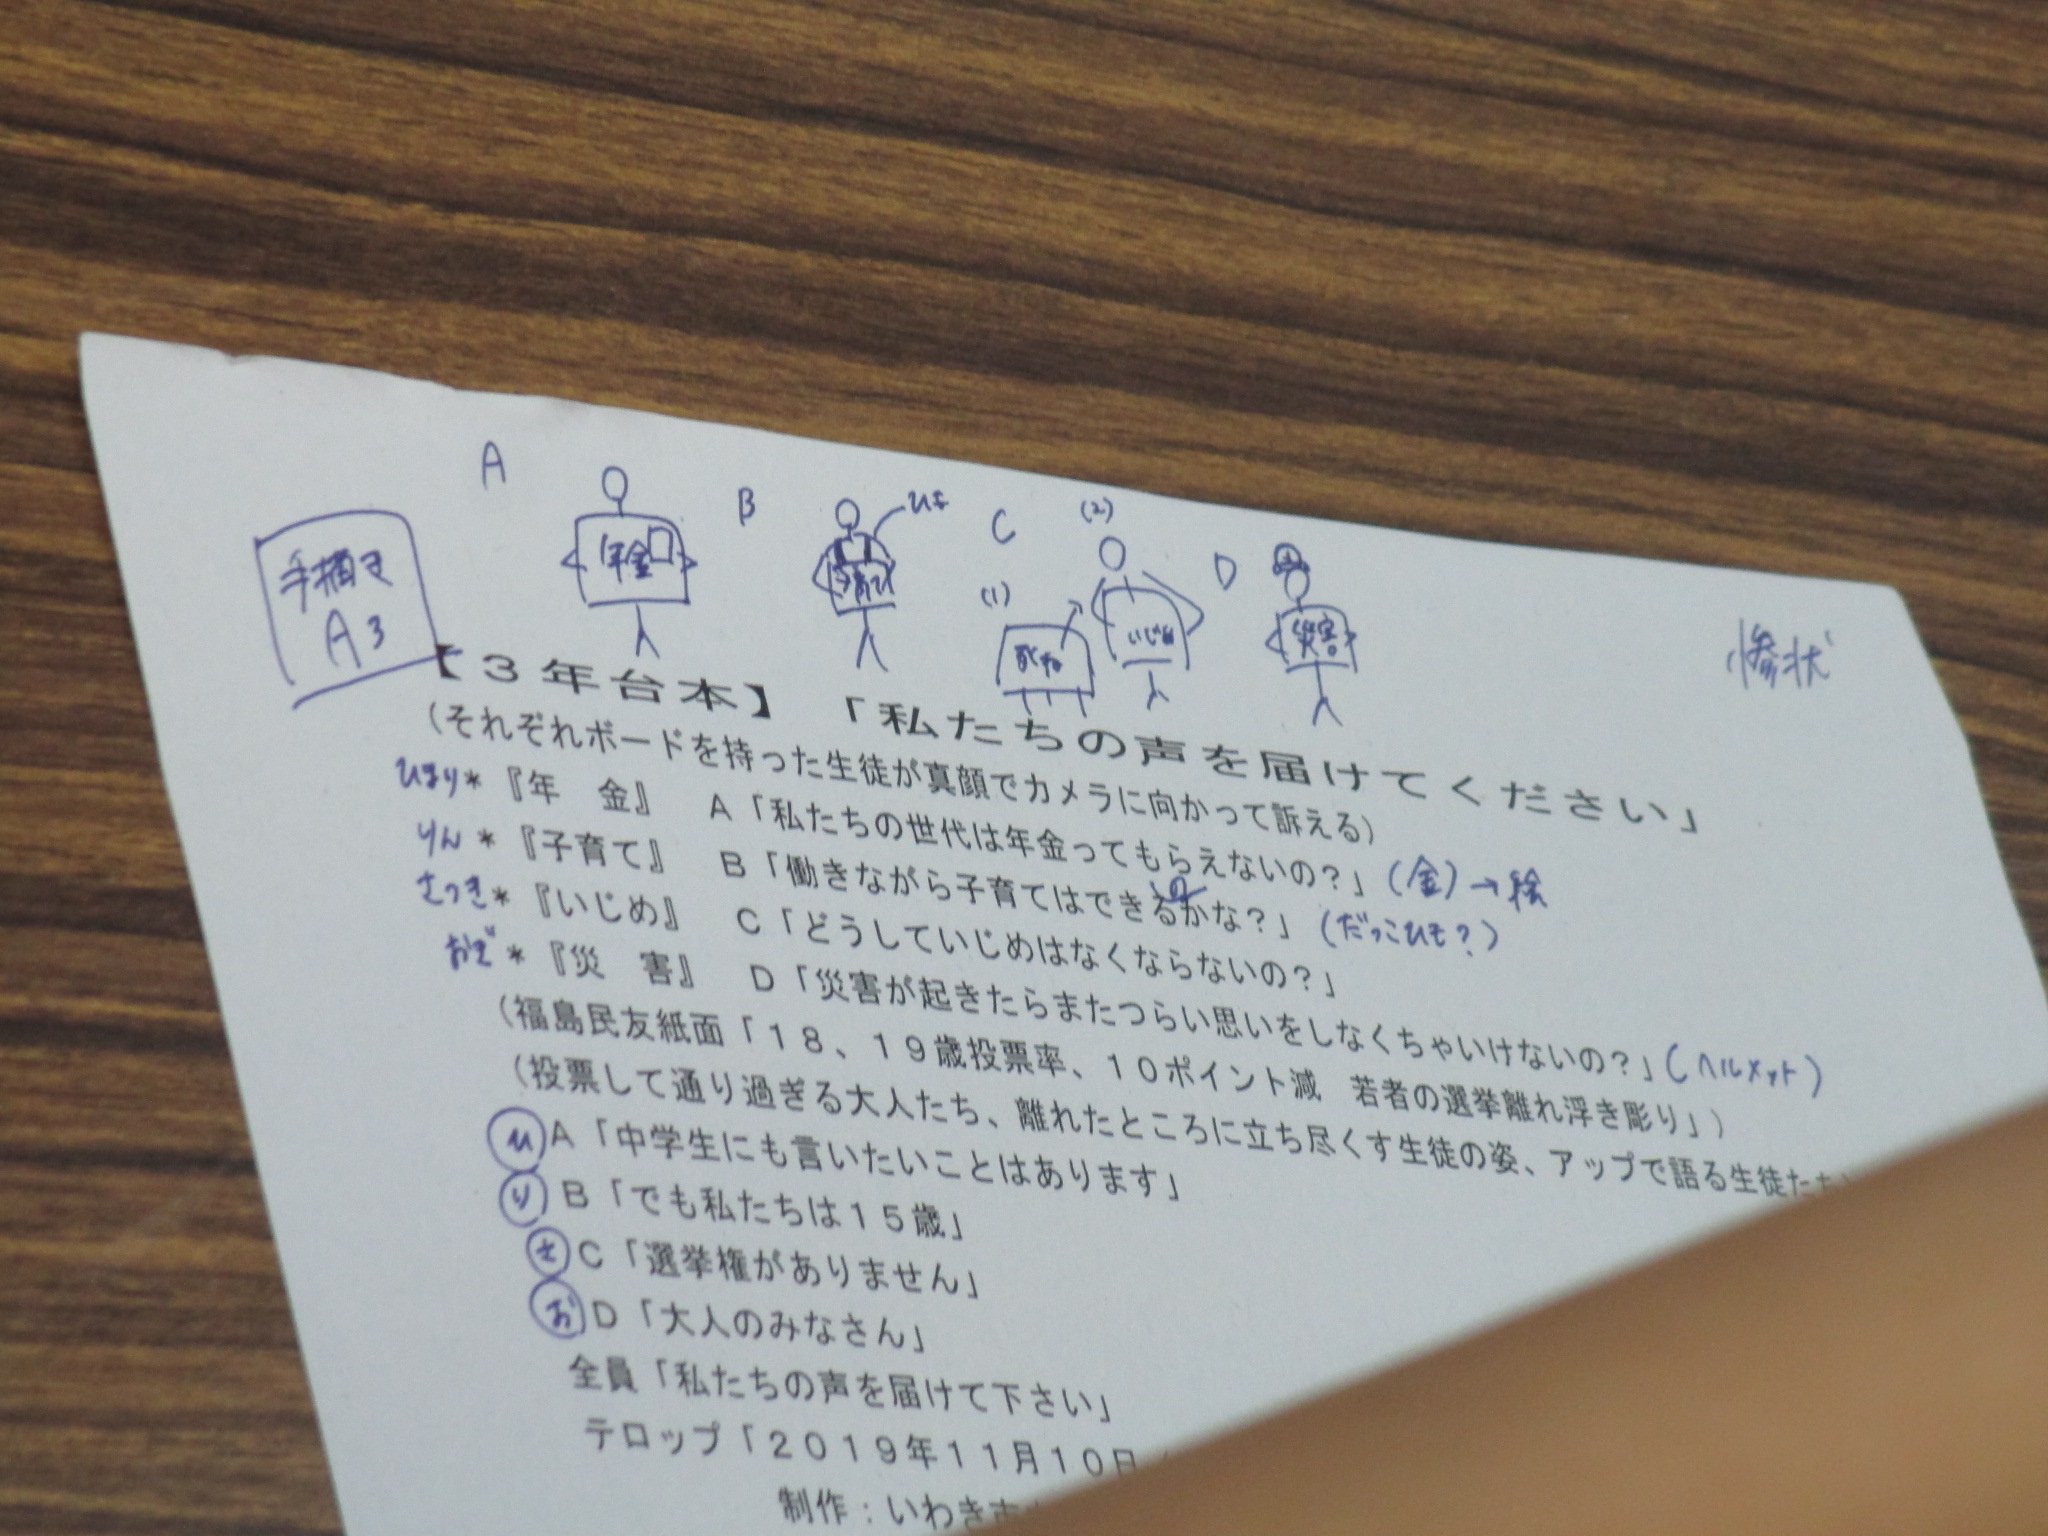 A
B
ひも
C
(2)
(1)
D
年金
子育て
いじめ
災害
手描き
A3
惨状
【３年台本】 「私たちの声を届けてください」
（それぞれボードを持った生徒が真顔でカメラに向かって訴える）
ひまり＊『年　金』 A「私たちの世代は年金ってもらえないの？」(金)→絵
りん＊『子育て』 B「働きながら子育てはできるのかな？」(だっこひも?)
さつき＊『いじめ』 C「どうしていじめはなくならないの？」
おぜ＊『災　害』 D「災害が起きたらまたつらい思いをしなくちゃいけないの？」(ヘルメット)
（福島民友紙面「１８、１９歳投票率、１０ポイント減　若者の選挙離れ浮き彫り」）
（投票して通り過ぎる大人たち、離れたところに立ち尽くす生徒の姿、アップで語る生徒たち）
ひ A「中学生にも言いたいことはあります」
り B「でも私たちは１５歳」
さ C「選挙権がありません」
お D「大人のみなさん」
全員「私たちの声を届けて下さい」
テロップ「２０１９年１１月１０日
制作：いわき市